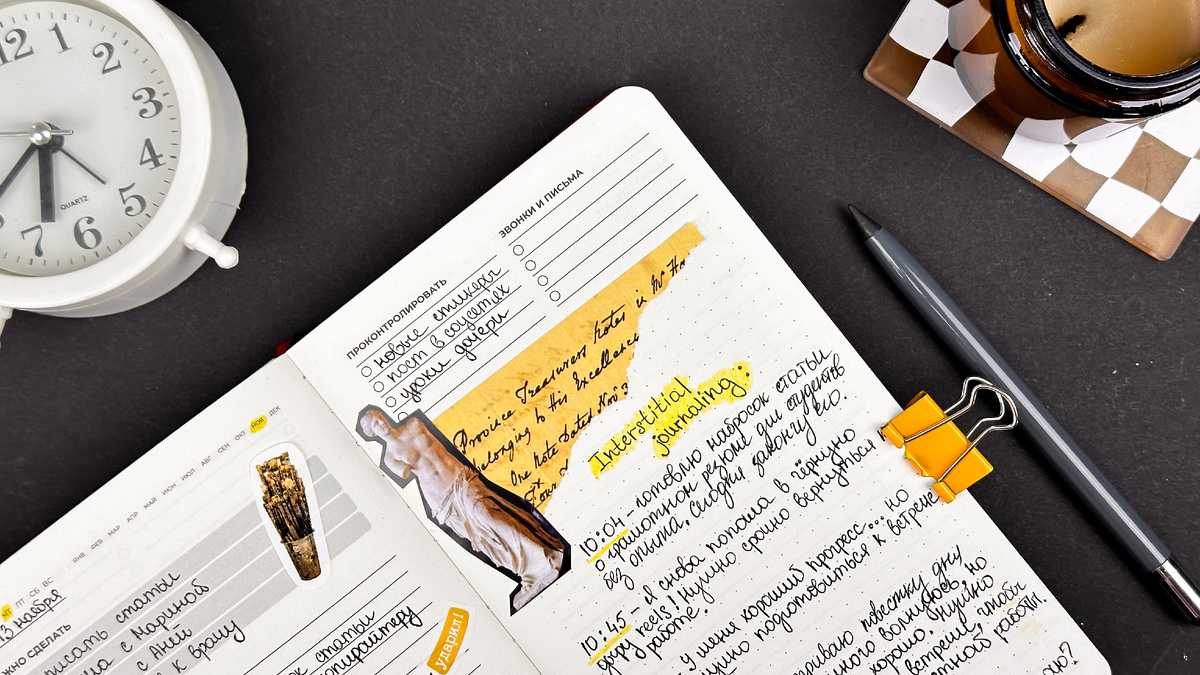 12
1
2
3
4
5
6
7
QUARTZ
ЯНВ ФЕВ МАР АПР МАЙ ИЮН ИЮЛ АВГ СЕН ОКТ НОЯ ДЕК
ПТ СБ ВС
13 ноября
сать статьи
с Мариной
с Аней
к врачу
статьи
ударил!
ПРОКОНТРОЛИРОВАТЬ
новые стикеры
пост в соцсетях
уроки дочери
ЗВОНКИ И ПИСЬМА
Province Treasurers Notes in
Belonging to His Excellence
One Note Dated Nov 3
Interstitial
journaling:
10:04 - готовлю набросок статьи
о грамотном резюме для студентов
без опыта, сегодня закончу его.
10:45 - я снова попала в чёрную
дыру reels! Нужно срочно вернуться к
работе.
У меня хороший прогресс... но
нужно подготовиться к встрече
повестку дня
волнуюсь, но
хорошо. Нужно
встречи, чтобы
работы.